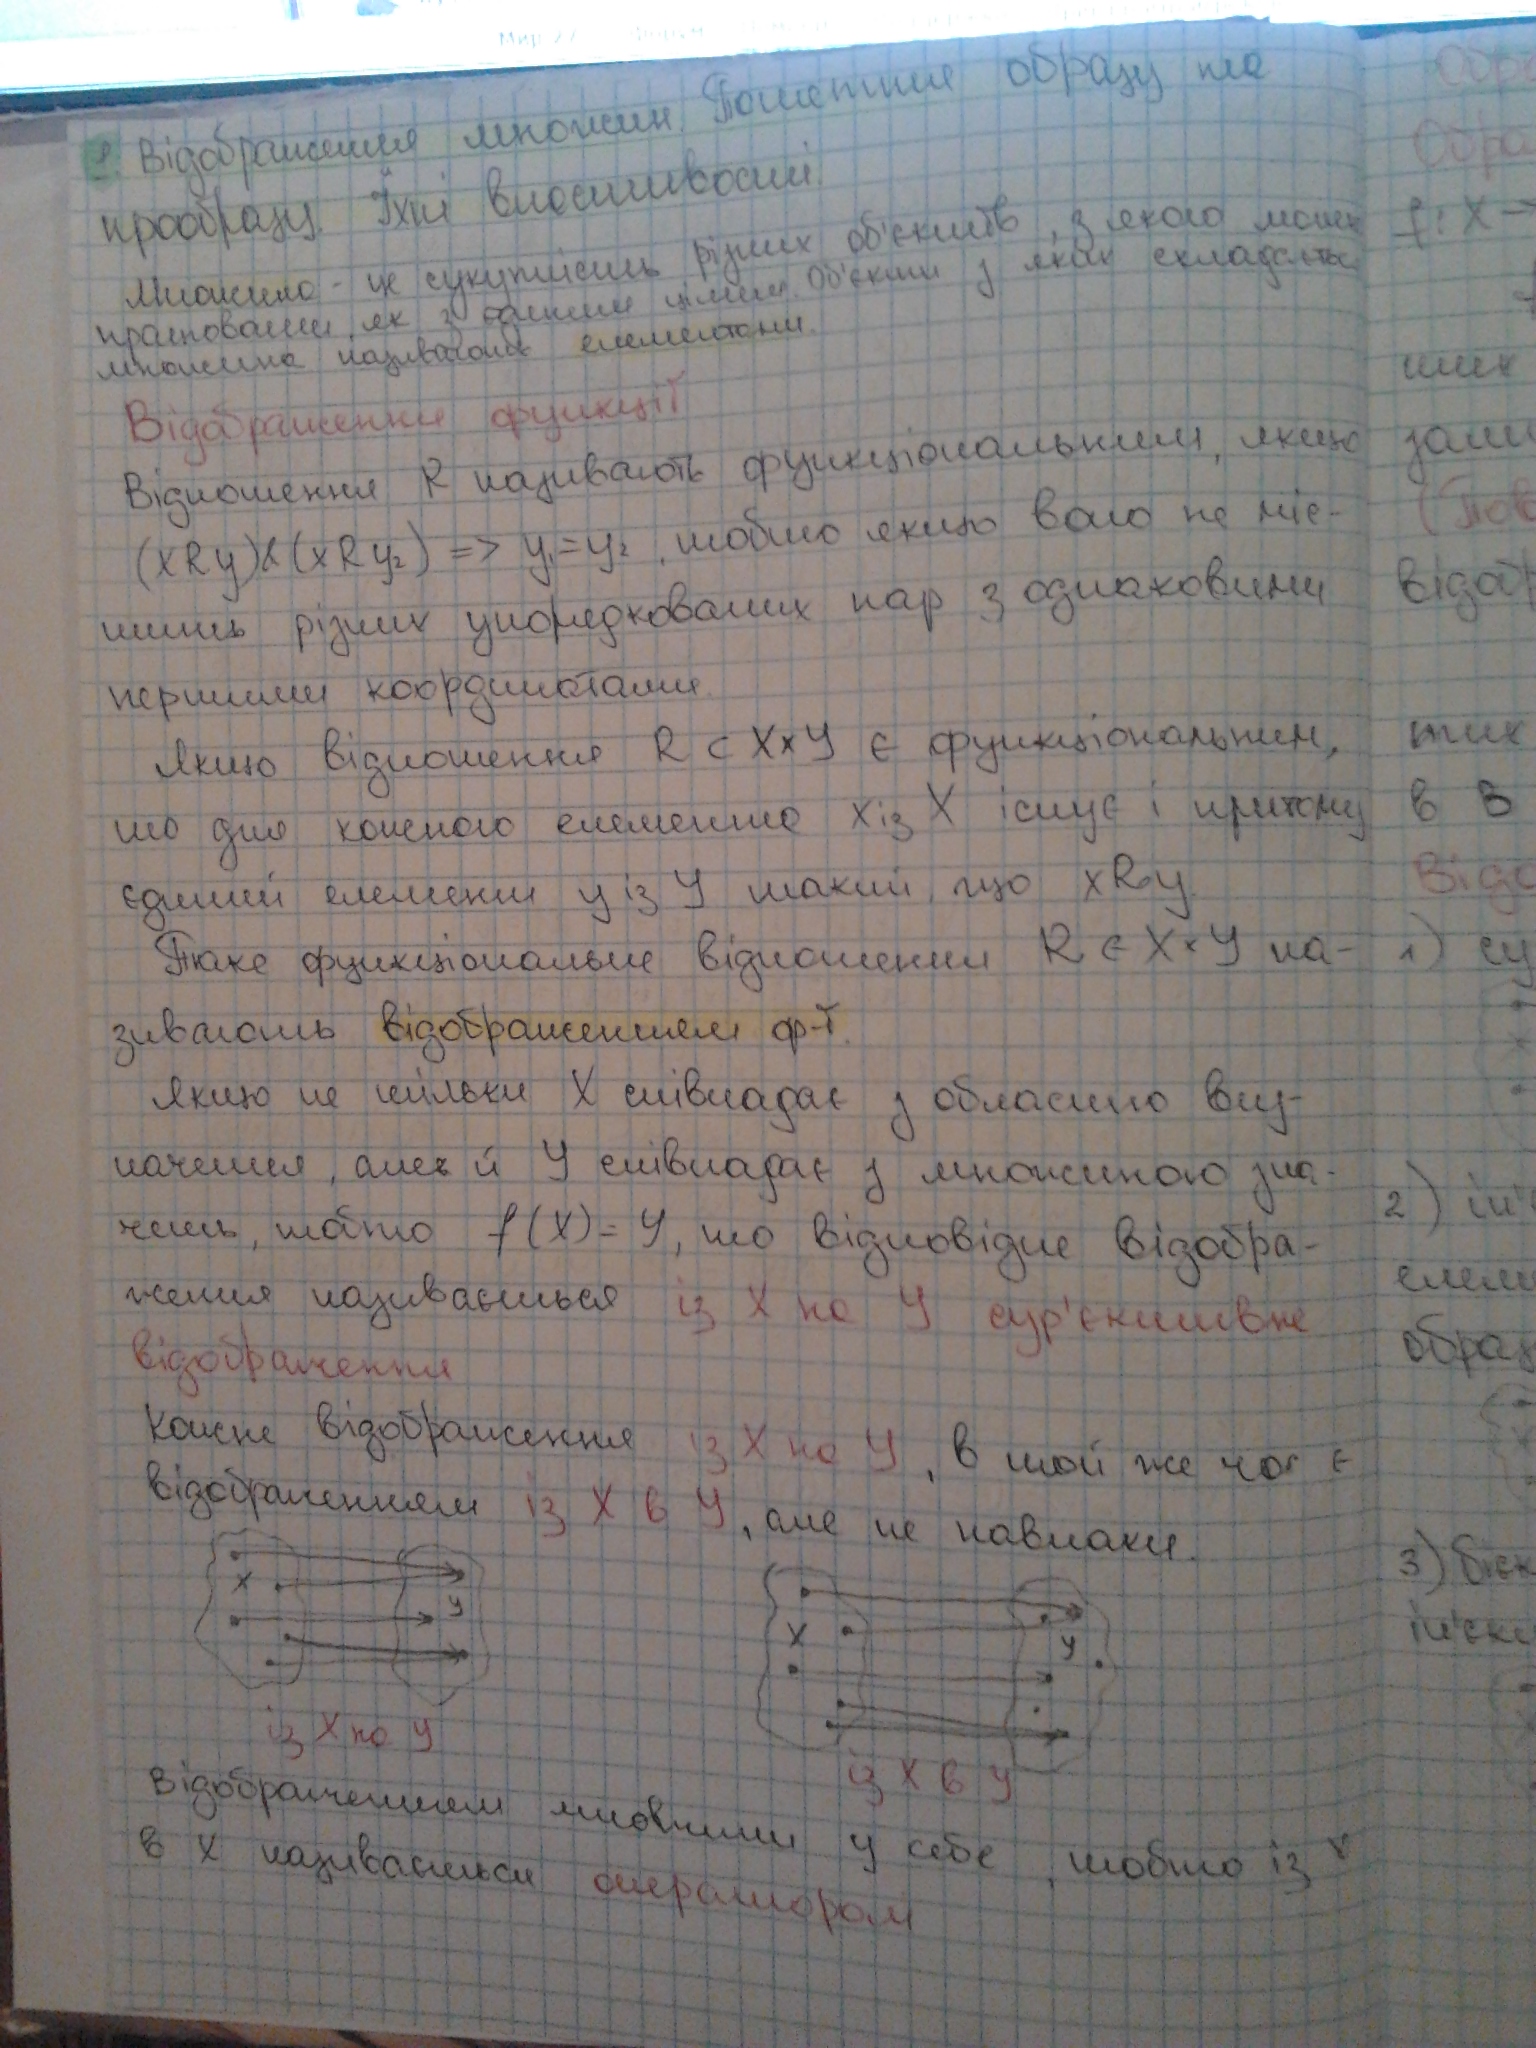 Відображення множин. Поняття образу та
прообразу. Їхні властивості.
Множина - це сукупність різних об'єктів, з якого
трактовани як з одним цілим. Об'єкти з яких складається
множина називають елементами.
Відображення функції
Відношення R називають функціональним, якщо
(xRy)&(xRy₂) => y₁=y₂, тобто якщо воно не міс-
тить різних упорядкованих пар з однаковими
першими координатами.
Якщо відношення R ⊂ X×Y є функціональним,
то для кожного елемента x із X існує і притому
єдиний елемент y із Y такий, що xRy.
Таке функціональне відношення R ∈ X×Y на-
зивають відображенням ф-ї.
Якщо не тільки X співпадає з областю виз-
начення, але й Y співпадає з множиною зна-
чень, тобто f(X)=Y, то відповідне відобра-
ження називається із X на Y сур'єктивне
відображення
Кожне відображення із X на Y, в той же час є
відображенням із X в Y, але не навпаки.
X
y
X
y
із X на Y
із X в Y
Відображенням множини у себе, тобто із X
в X називається оператором
Обра
f: X →
них
зали
(Пов
відобр
тих
в B
Відо
1) су
2) ін'
елем
образ
3) бієк
ін'єк